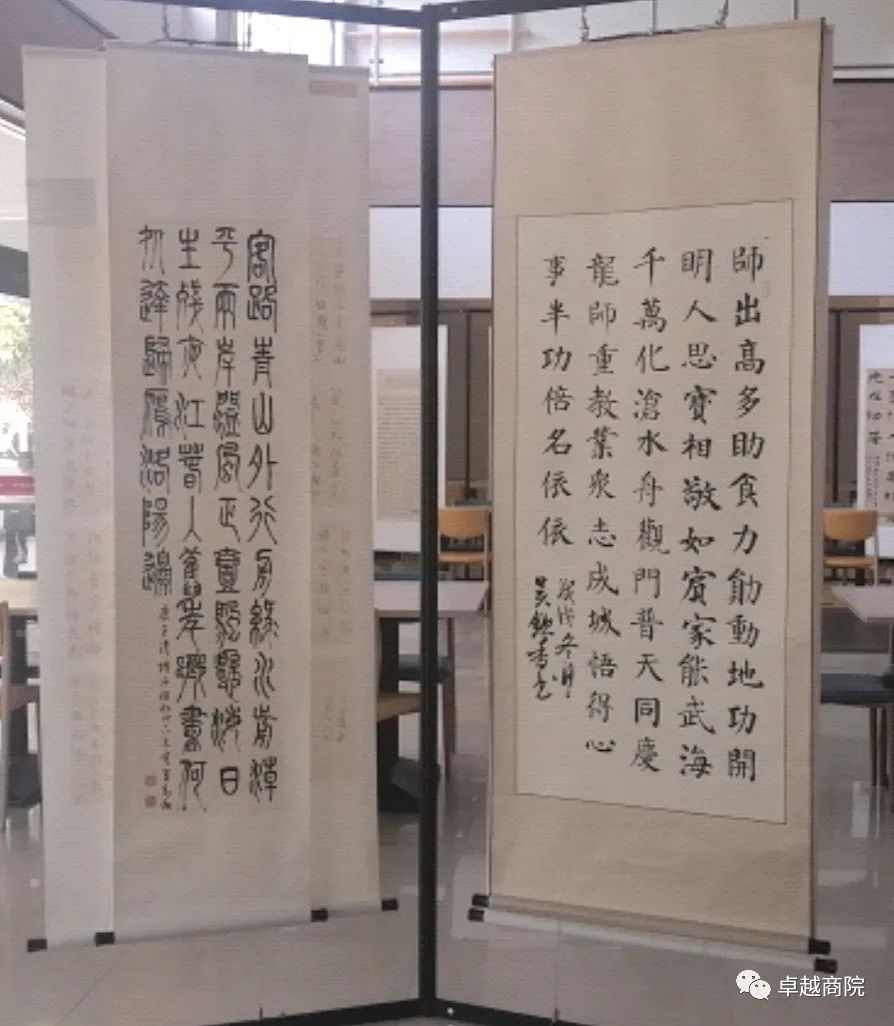 師出高多助食力動地功開
明人思寶相敬如賓家能武海
千萬化滄水舟觀門普天同慶
龍師重教業衆志成城悟得心
事半功倍名依依
戊戌冬月
客路青山外行舟綠水前潮
平兩岸闊風正壹帆懸海日
生殘夜江春入舊年鄉書何
処達歸雁洛陽邊
卓越商院